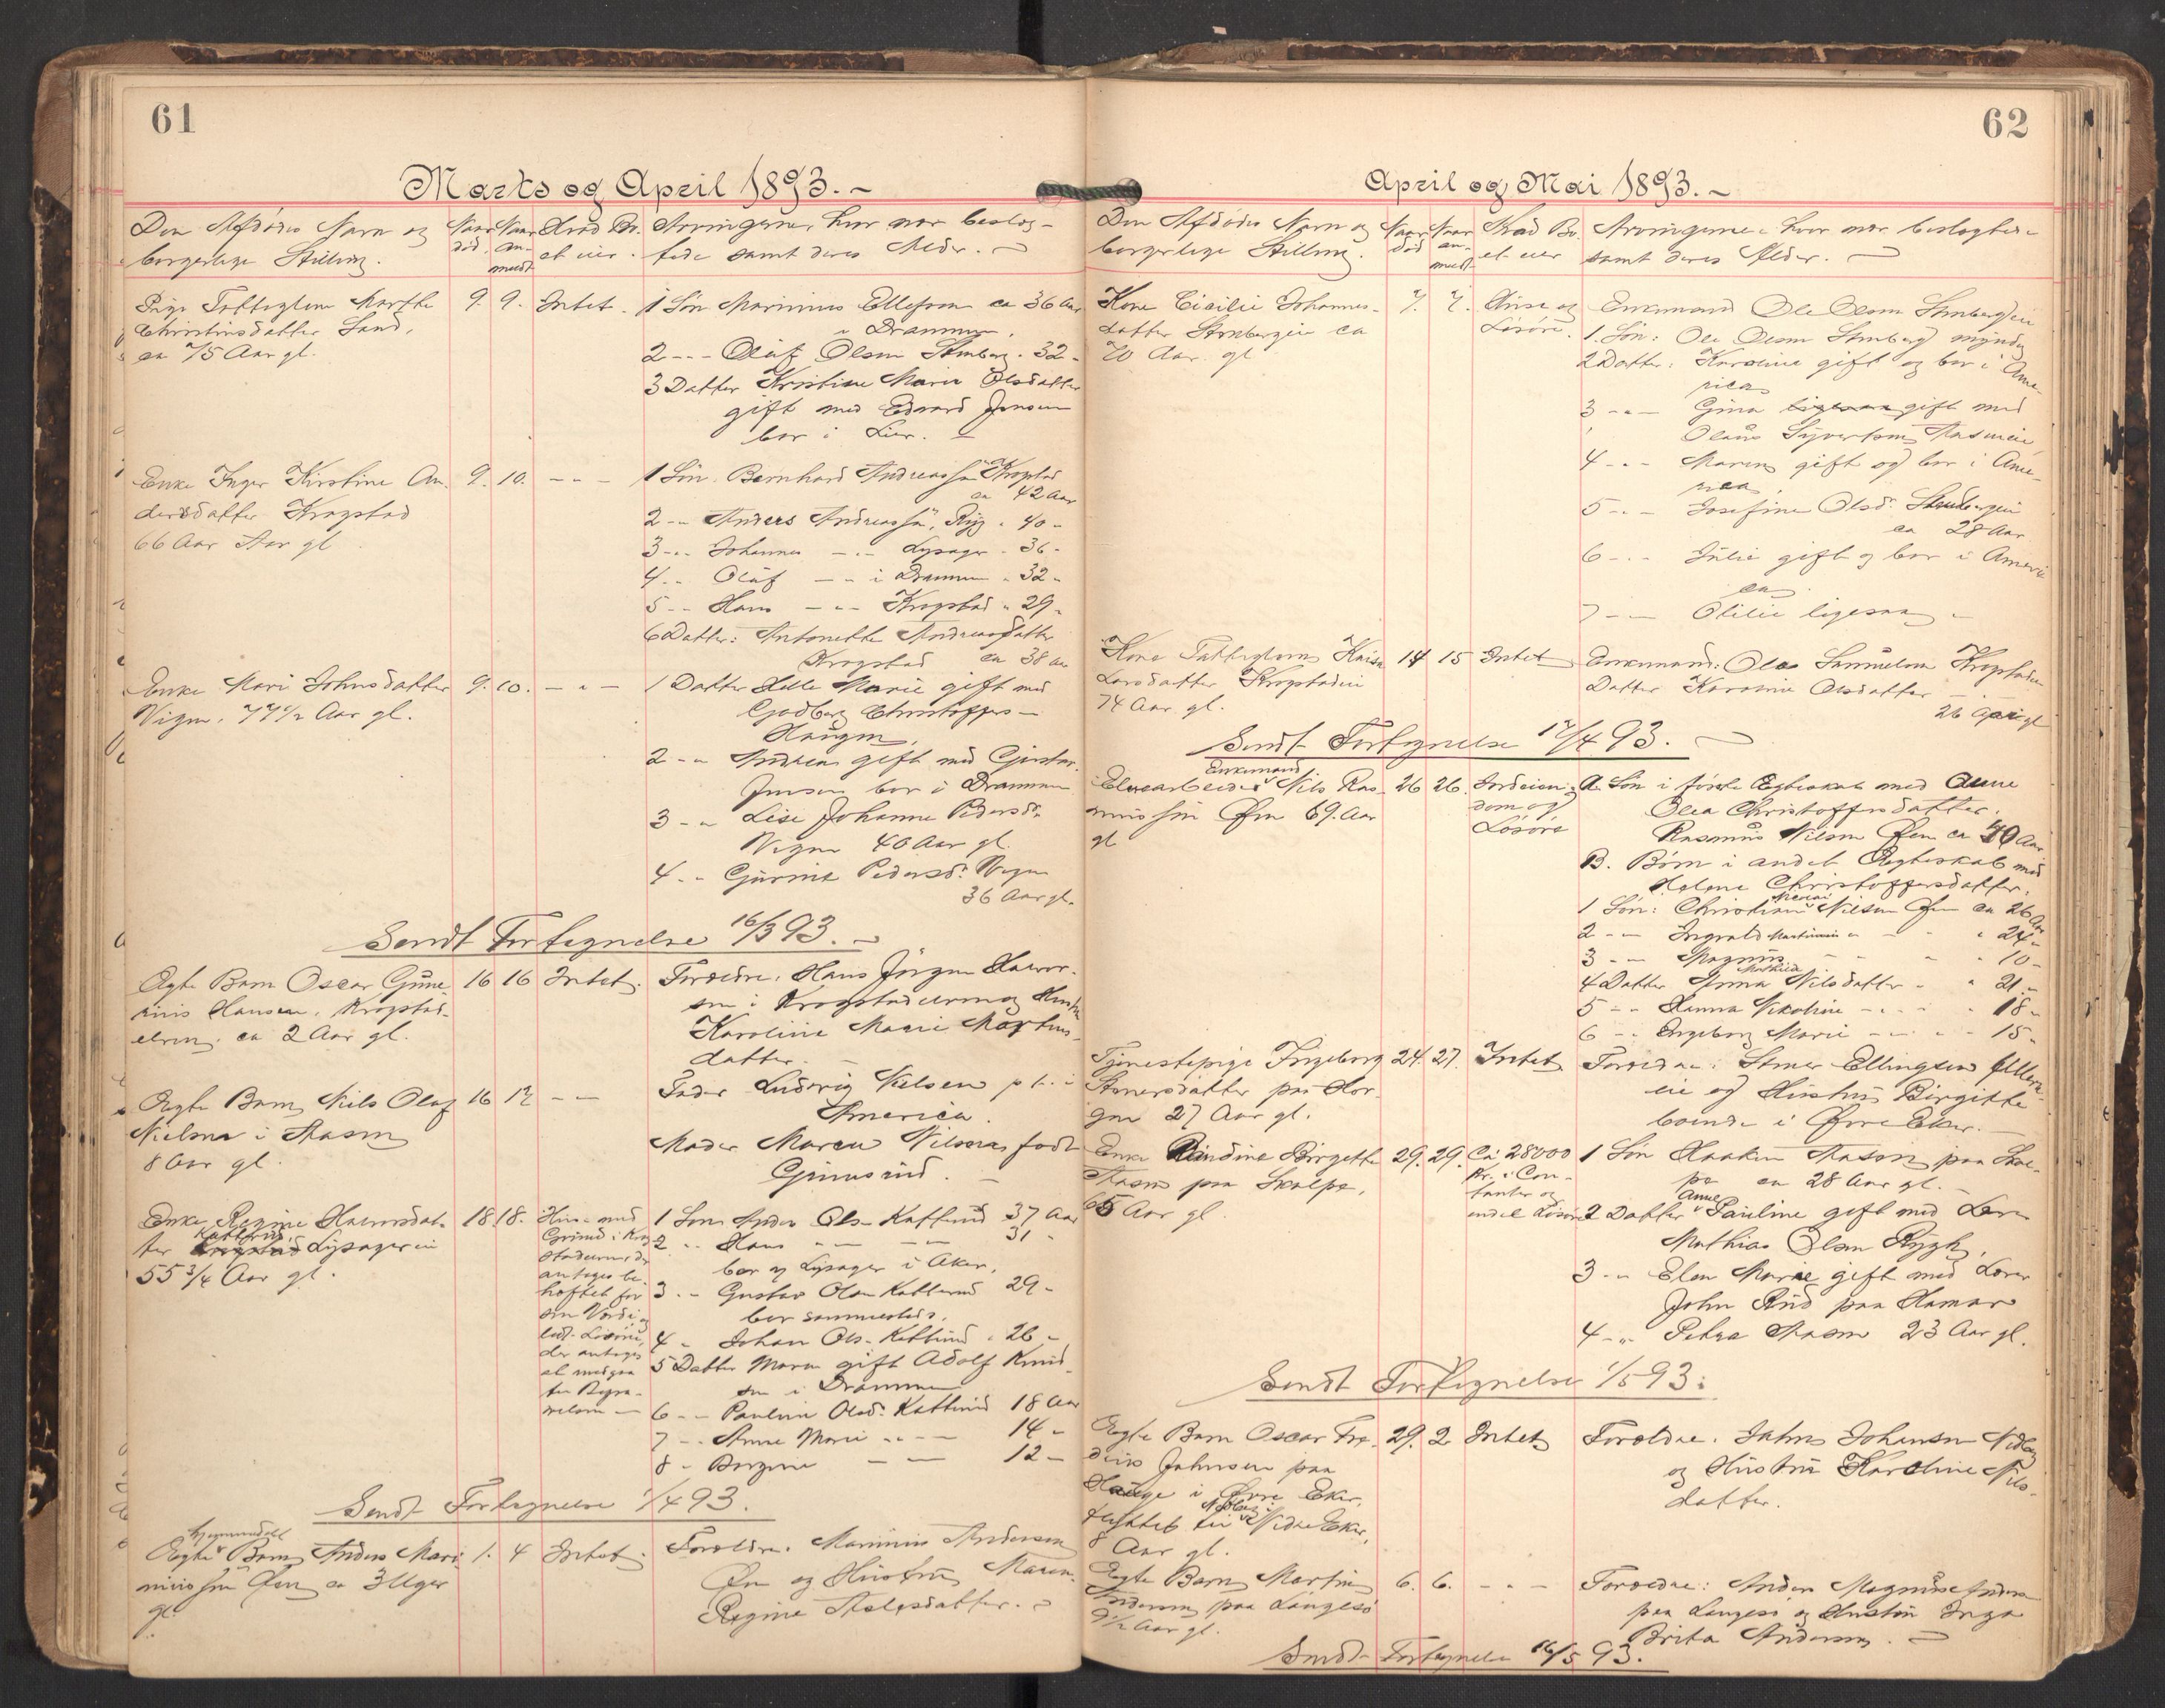 61
Marts og April 1893.
Den Afdødes Navn og borgerlige Stilling.
Naar død.
Naar anmeldt
Hvad Bo. et eier.
Arvingerne, hvor nær beslægtede samt deres Alder.
Pige Fattiglem Marthe
Christinsdatter Sand,
ca 75 Aar gl.
9. 9. Intet.
1 Søn Marinius Ellefsen ca 36 Aar
i Drammen.
2 - - - Olaf Olsen Stenberg. 32 -
3 Datter Kristine Marie Olsdatter
gift med Edvard Jensen
bor i Lier.
Enke Inger Kirstine An-
dersdatter Krogstad
66 Aar gl
9. 10. - - -
1 Søn. Bernhard Andreassøn Krogstad
ca 42 Aar
2 - - Anders Andreassøn, Ryg - 40 -
3 - - Johannes - - - Lysager - 36 -
4 - - Olaf - - i Drammen - 32 -
5 - - Hans - - - Krogstad - 29 -
6 Datter: Antonette Andreasdatter
Krogstad ca 38 Aar
Enke Mari Johnsdatter
Vigen, 77 1/2 Aar gl.
9. 10. - - -
1 Datter Helle Marie gift med
Gudbrg Christoffers-
Haugen,
2 - - Andrea gift med Gustav
Jensen bor i Drammen
3 - - Lise Johanne Pedersd:
Vigen 40 Aar gl.
4 - - Gurine Pedersd: Vigen
36 Aar gl.
Sendt Fortegnelse 16/3 93.
Ægte Barn Oscar Gune-
rius Hansen, Krogstad-
elven, ca 2 Aar gl.
16 16 Intet.
Forældre. Hans Jørgen Halvor-
sen i Krogstadelven og Hustru
Karoline Marie Martins-
datter.
Ægte Barn Nils Olaf
Nielsen i Aasen
8 Aar gl.
16 17 - -
Fader Ludvig Nielsen p. t. i
America.
Moder Maren Nilsen født
Gunnerud.
Enke Regine Halvorsdat-
ter Katterud Lysagerein
55 3/4 Aar gl.
18 18. Huse med
Grund i Krog
stadelven, der
antages be-
heftet for
sin Værdi, og
lidt Løsøre,
der antages
at medgaa
til Begra-
velsen
1 Søn Anders Ols- Katterud 37 Aar
2 - - Hans - - - - 31 -
bor og Lysager i Aker.
3 - - Gustav Olsen Katterud 29 -
bor sammesteds.
4 - Johan Ols- Katterud - 26 -
5 Datter Maren gift Adolf Knud-
sen i Drammen
6 - - Pauline Olsd: Katterud 18 Aar
7 - - Anne Marie - - - 14 -
8 - Borgine - - 12 -
Sendt Fortegnelse 1/4 93.
hjemmedøbt
Ægte Barn Anders Mari-
niussøn Øen ca 3 Uger
gl.
1. 4 Intet.
Forældre. Marinius Andersen
Øen og Hustru Maren
Regine Aslesdatter.
62
April og Mai 1893.
Den Afdødes Navn og borgerlige Stilling.
Naar død
Naar anmeldt
Hvad Bo. et eier
Arvingerne, hvor nær beslægtede samt deres Alder.
Kone Cicilie Johannes-
datter Stenbergeie ca
70 Aar. gl
7. 7. Huse og
Løsøre.
Enkemand Ole Olsen Stenbergeie
1. Søn: Ole Olsen Stenberg myndig
2 Datter: Karoline gift og bor i Ame-
rica
3 - - Gina ligesaa gift med
Olaus Syvertsen Aaseneie
4 - - Maren gift og bor i Ame-
rica,
5 - - Josefine Olsd: Stenbergeie
ca 28 Aar
6 - - Julie gift og bor i Ameri
ca
7 - - Otilie ligesaa
Kone Fattiglem Kaisa
Larsdatter Krogstadeie
74 Aar gl.
14 15 Intet
Enkemand: Ole Samuelsen Krogstadeie
Datter Karoline Olsdatter
26 Aar gl
Sendt Fortegnelse 17/4 93.
Enkemand
Elvearbeider Nils Ras-
mussøn Øen 69. Aar
gl
26 26. Jordeien-
dom og
Løsøre
A Søn i første Ægteskab med Anne
Olea Christoffersdatter.
Rasmus Nilsen Øen ca 40 Aar
B. Børn i andet Ægteskab med
Helene Christoffersdatter.
1 Søn: Christian Nilsen Øen ca 26 Aar
2 - - Ingvald Martinius - - 24 -
3 - - Magnus - - - 10 -
4 Datter Anna Mathilde Nilsdatter - - 21 -
5 - - Hanna Nikoline - - - 18 -
6 - - Engeborg Marie - - - 15 -
Tjenestepige Ingeborg
Stenersdatter paa Hor-
gen 27 Aar gl.
24. 27. Intet
Forældre: Stener Ellingsen
eie og Hustru Birgitte
boende i Øvre Eker.
Enke Randine Birgette
Aasen paa Skalpe,
65 Aar gl.
29. 29. Ca 28000
Kr. i Con-
tanter og
endel Løsøre
1 Søn Haaken Aasen paa Skal-
pe ca 28 Aar gl.
2 Datter Anne Pauline gift med Lærer
Mathias Olsen Rygh,
3 - - Elen Marie gift med Lærer
John Rud paa Hamar
4 - - Petra Aasen 23 Aar gl.
Sendt Fortegnelse 1/5 93.
Ægte Barn Oscar Fre-
driks Johnsen paa
Hauge i Øvre Eker,
flyttet til Nedre Eker,
8 Aar gl.
29. 2 Intet
Forældre. Johns Johansen
og Hustru Karoline Nils-
datter.
Ægte Barn Martin
Andersen paa Langesø
9 1/2 Aar gl.
6. 6. - - -
Forældre: Anders Magnus Andersen
paa Langesø og Hustru Inga
Brita Andersen.
Sendt Fortegnelse 16/5 93.